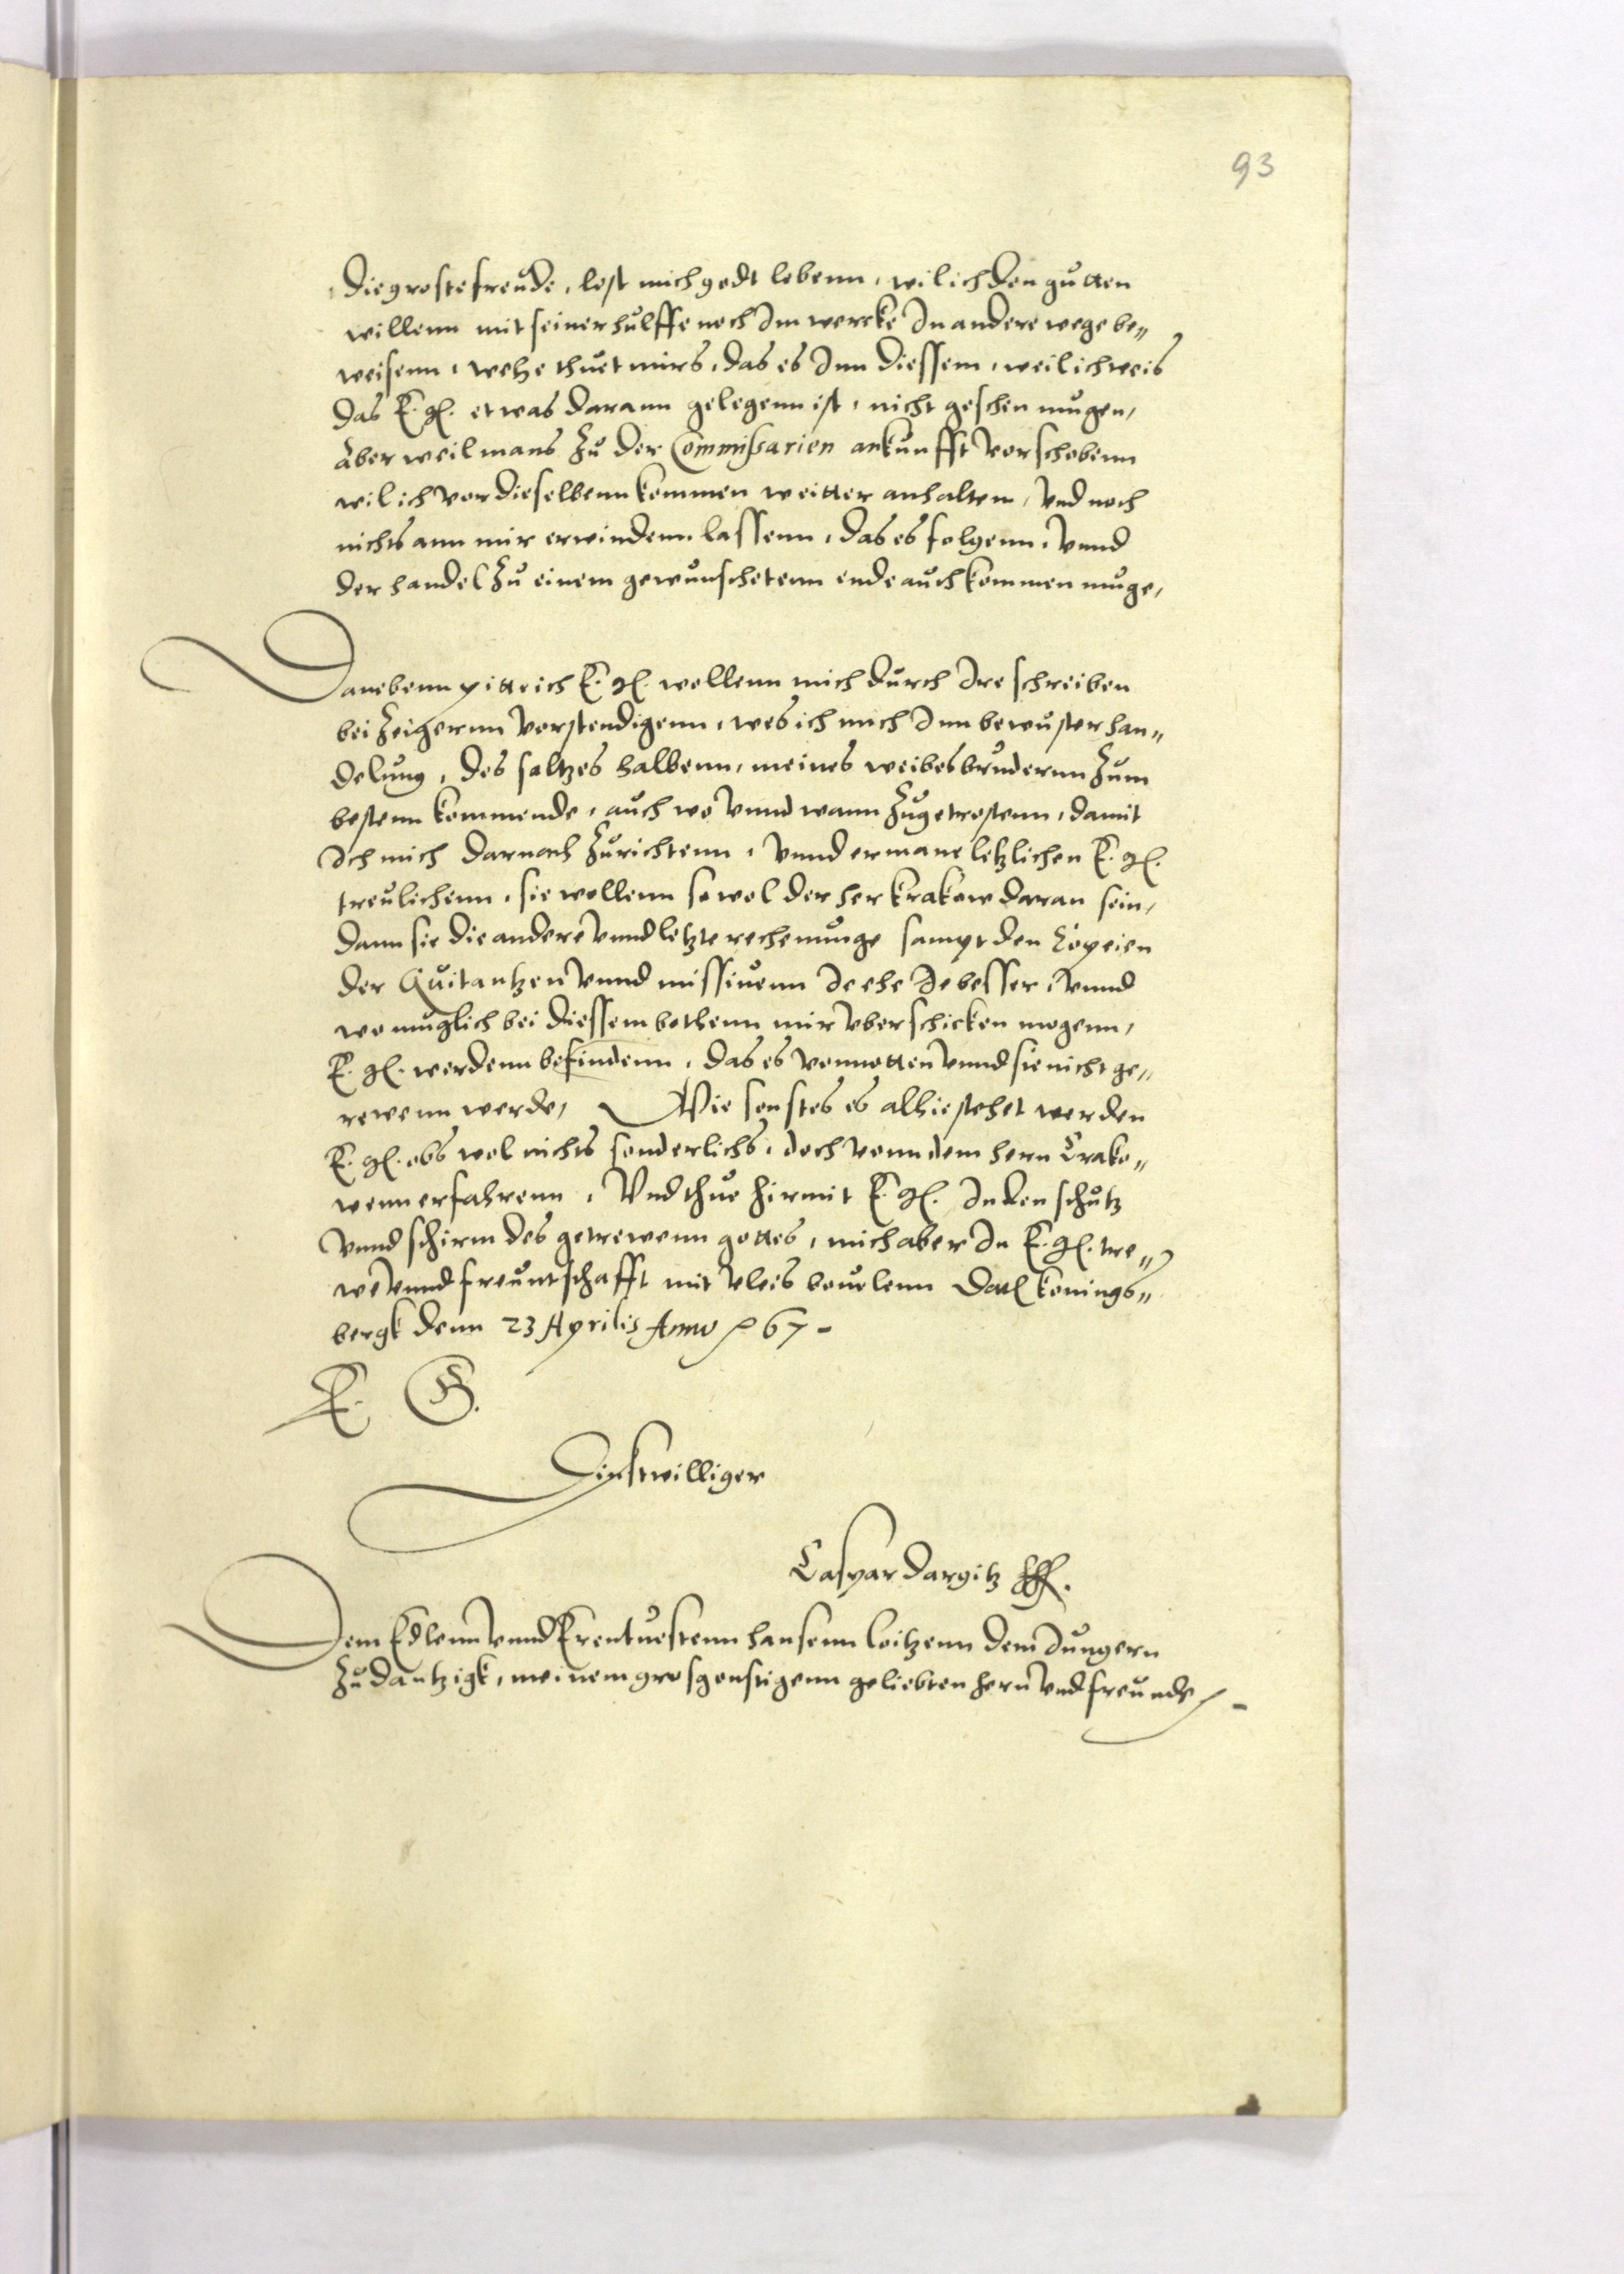 93
die groste freude, lest mich godt lebenn, wil ich den gutten
willenn mit seiner hulffe noch Im wercke In andere wege be„
weisenn, wehe thuet mirs, das es Inn diessem, weil ich weis
das E. gl. etwas darann gelegenn ist, nicht geschen mugen,
aber weil mans zu der Commissarien ankunfft vorschobenn
wil ich vor dieselbenn kommen weitter anhalten, vnd noch
nichts ann mir erwindenn lassenn, das es folgenn, vnnd
der handel zu einem gewunschetenn ende auch kommen muge,
Danebenn pitte ich E. gl. wollenn mich durch Ire schreiben
bei zeigernn vorstendigenn, wes ich mich Inn bewuster han„
delung, des saltzes halbenn, meines weibes brudernn zum
bestenn kommende, auch wo vnnd wann zugetrostenn, damit
Ich mich darnach zurichtenn, vnnd ermane letzlichen E. gl.
treulichenn, sie wollenn sowol der her krakow daran sein,
dann sie die andere vnnd letzte rechenunge sampt den Copeien
der Quitantzen vnnd missiuenn Je ehe Je besser, vnnd
wo muglich bei diessem bothenn mir vberschicken mogenn,
E. gl. werdenn befindenn, das es vonnotten vnnd sie nicht ge„
rewenn werde, Wie sonstes es alhie stehet werden
E. gl. obs wol nichts sonderlichs, doch vonn dem hern Crako„
wenn erfahrenn, Vnd thue hirmit E. gl. In den schutz
vnnd schirm des getrewenn gottes, mich aber In E. gl. tre„
we vnnd freuntschafft mit vleis beuelenn Datl konings„
bergk denn 23 Aprilis Anno 67 -
E. G.
Dinstwilliger
Caspar Dargitz
Dem Edlenn vnnd Erentuestenn hansenn loitzenn dem Jungern
zu dantzigk, meinem grosgonstigenn geliebten hern vnd freunde